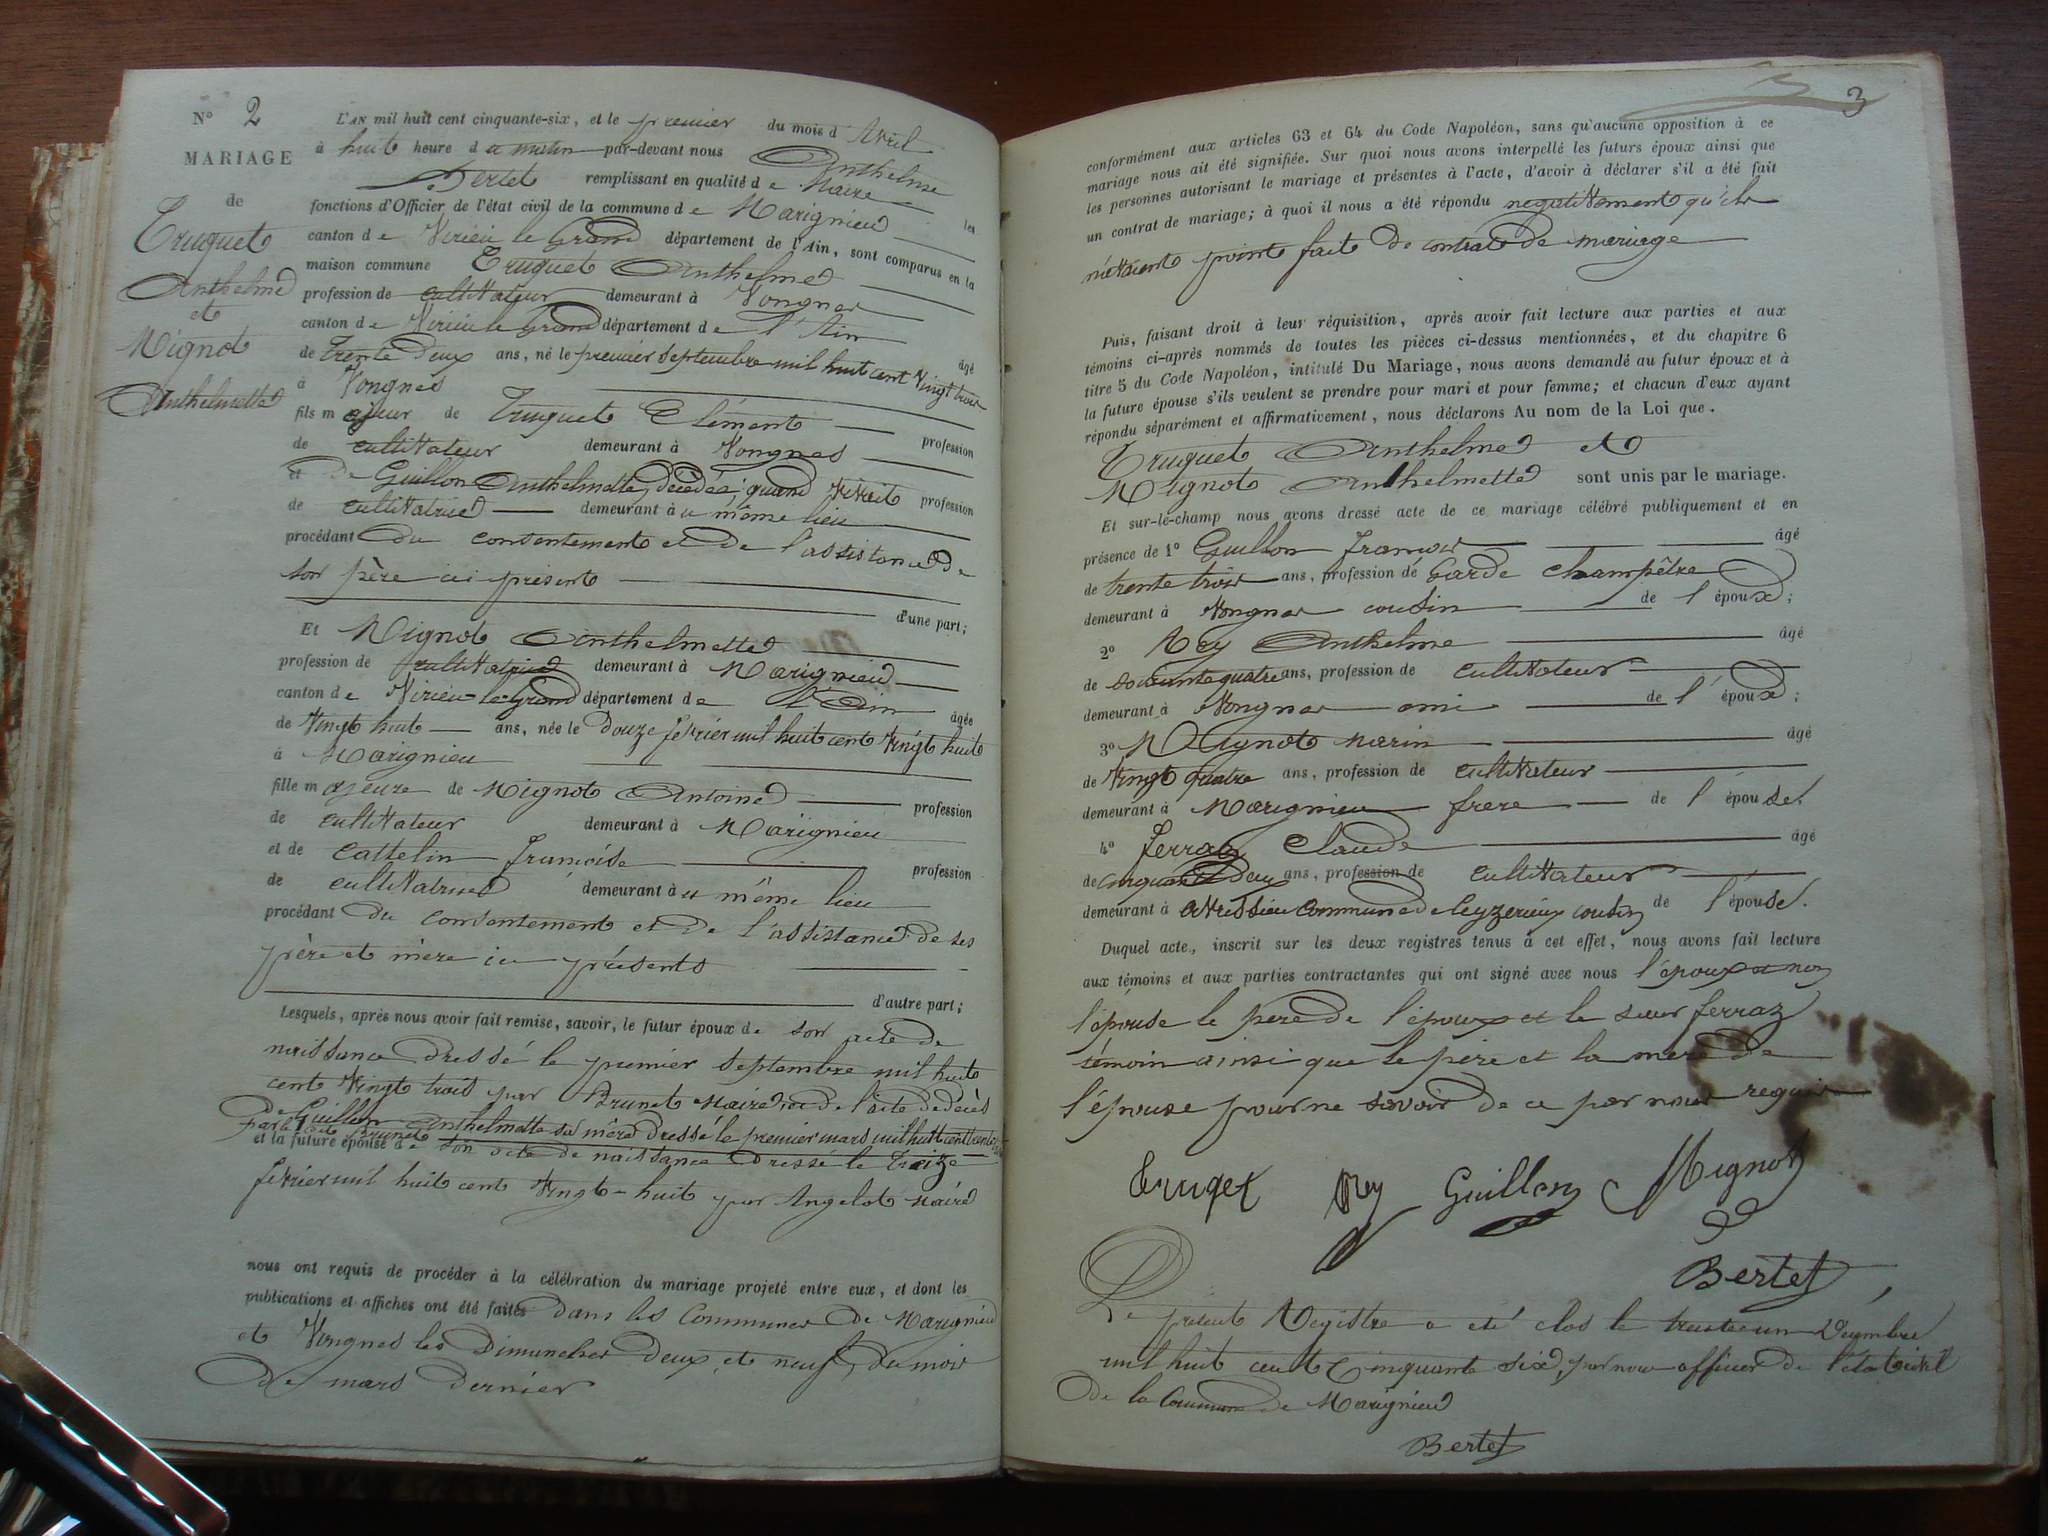 N° 2
MARIAGE
de
Truquet
Anthelme
et
Mignot
Anthelmette
L'AN mil huit cent cinquante-six, et le premier du mois d'Avril
à huit heure du matin par-devant nous Anthelme
Bertet remplissant en qualité de Maire les
fonctions d'Officier de l'état civil de la commune de Marignieu
canton de Virieu le Grand département de l'Ain, sont comparus en la
maison commune Truquet Anthelme
profession de cultivateur demeurant à Vongnes
canton de Virieu le Grand département de l'Ain âgé
de trente deux ans, né le premier septembre mil huit cent vingt trois
à Vongnes
fils majeur de Truquet Clément profession
de cultivateur demeurant à Vongnes
et de Guillon Anthelmette, décédée; quand vivait profession
de cultivatrice demeurant au même lieu
procédant du consentement et de l'assistance de
son père ici présent
d'une part;
Et Mignot Anthelmette
profession de cultivatrice demeurant à Marignieu
canton de Virieu le Grand département de l'Ain âgée
de vingt huit ans, née le douze février mil huit cent vingt huit
à Marignieu
fille majeure de Mignot Antoine profession
de cultivateur demeurant à Marignieu
et de Cattelin françoise profession
de cultivatrice demeurant au même lieu
procédant du consentement et de l'assistance de ses
père et mère ici présents
d'autre part;
Lesquels, après nous avoir fait remise, savoir, le futur époux de son acte de
naissance dressé le premier septembre mil huit
cent vingt trois par Brunet Maire, et de l'acte de décès
de Guillon Anthelmette sa mère dressé le premier mars mil huit cent trente
par le dit Brunet
et la future épouse de son acte de naissance dressé le treize
février mil huit cent vingt-huit par Angelot Maire
nous ont requis de procéder à la célébration du mariage projeté entre eux, et dont les
publications et affiches ont été faites dans les Communes de Marignieu
et Vongnes les Dimanches deux et neuf, du mois
de mars dernier
3
conformément aux articles 63 et 64 du Code Napoléon, sans qu'aucune opposition à ce
mariage nous ait été signifiée. Sur quoi nous avons interpellé les futurs époux ainsi que
les personnes autorisant le mariage et présentes à l'acte, d'avoir à déclarer s'il a été fait
un contrat de mariage; à quoi il nous a été répondu négativement qu'ils
n'avaient point fait de contrat de mariage
Puis, faisant droit à leur réquisition, après avoir fait lecture aux parties et aux
témoins ci-après nommés de toutes les pièces ci-dessus mentionnées, et du chapitre 6
titre 5 du Code Napoléon, intitulé Du Mariage, nous avons demandé au futur époux et à
la future épouse s'ils veulent se prendre pour mari et pour femme; et chacun d'eux ayant
répondu séparément et affirmativement, nous déclarons Au nom de la Loi que.
Truquet Anthelme et
Mignot Anthelmette sont unis par le mariage.
Et sur-le-champ nous avons dressé acte de ce mariage célébré publiquement et en
présence de 1° Guillon françois âgé
de trente trois ans, profession de Garde champêtre
demeurant à Vongnes cousin de l'époux;
2° Rey Anthelme âgé
de soixante quatre ans, profession de cultivateur
demeurant à Vongnes ami de l'époux;
3° Mignot Marin âgé
de vingt quatre ans, profession de cultivateur
demeurant à Marignieu frère de l'épouse.
4° Ferraz Claude âgé
de cinquante deux ans, profession de cultivateur
demeurant à Avressieu commune de Ceyzerieu cousin de l'épouse.
Duquel acte, inscrit sur les deux registres tenus à cet effet, nous avons fait lecture
aux témoins et aux parties contractantes qui ont signé avec nous l'époux et non
l'épouse le père de l'époux et le sieur ferraz
témoin ainsi que le père et la mère de
l'épouse pour ne savoir de ce par nous requis
Truqet Rey Guillon Mignot
Bertet
Le présent Registre a été clos le trente un Décembre
mil huit cent cinquante six, par nous officier de l'état civil
de la Commune de Marignieu
Bertet